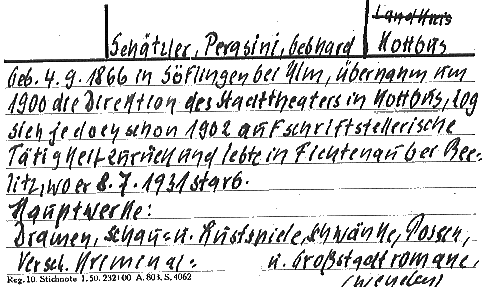 Landkreis
Schätzler, Perasini, Gebhard Kottbus
Geb. 4.9.1866 in Söflingen bei Ulm, übernahm um
1900 die Direktion des Stadttheaters in Kottbus, zog
sich jedoch schon 1902 auf schriftstellerische
Tätigkeit zurück und lebte in Fichtenau bei Bee-
litz, wo er 8.7.1931 starb.
Hauptwerke:
Dramen, Schau= u. Lustspiele, Schwänke, Possen,
Versch. Kriminal= u. Großstadtromane,
Reg. 10. Stichnote 1. 50. 232100 A. 803, S. 4062
(wenden)